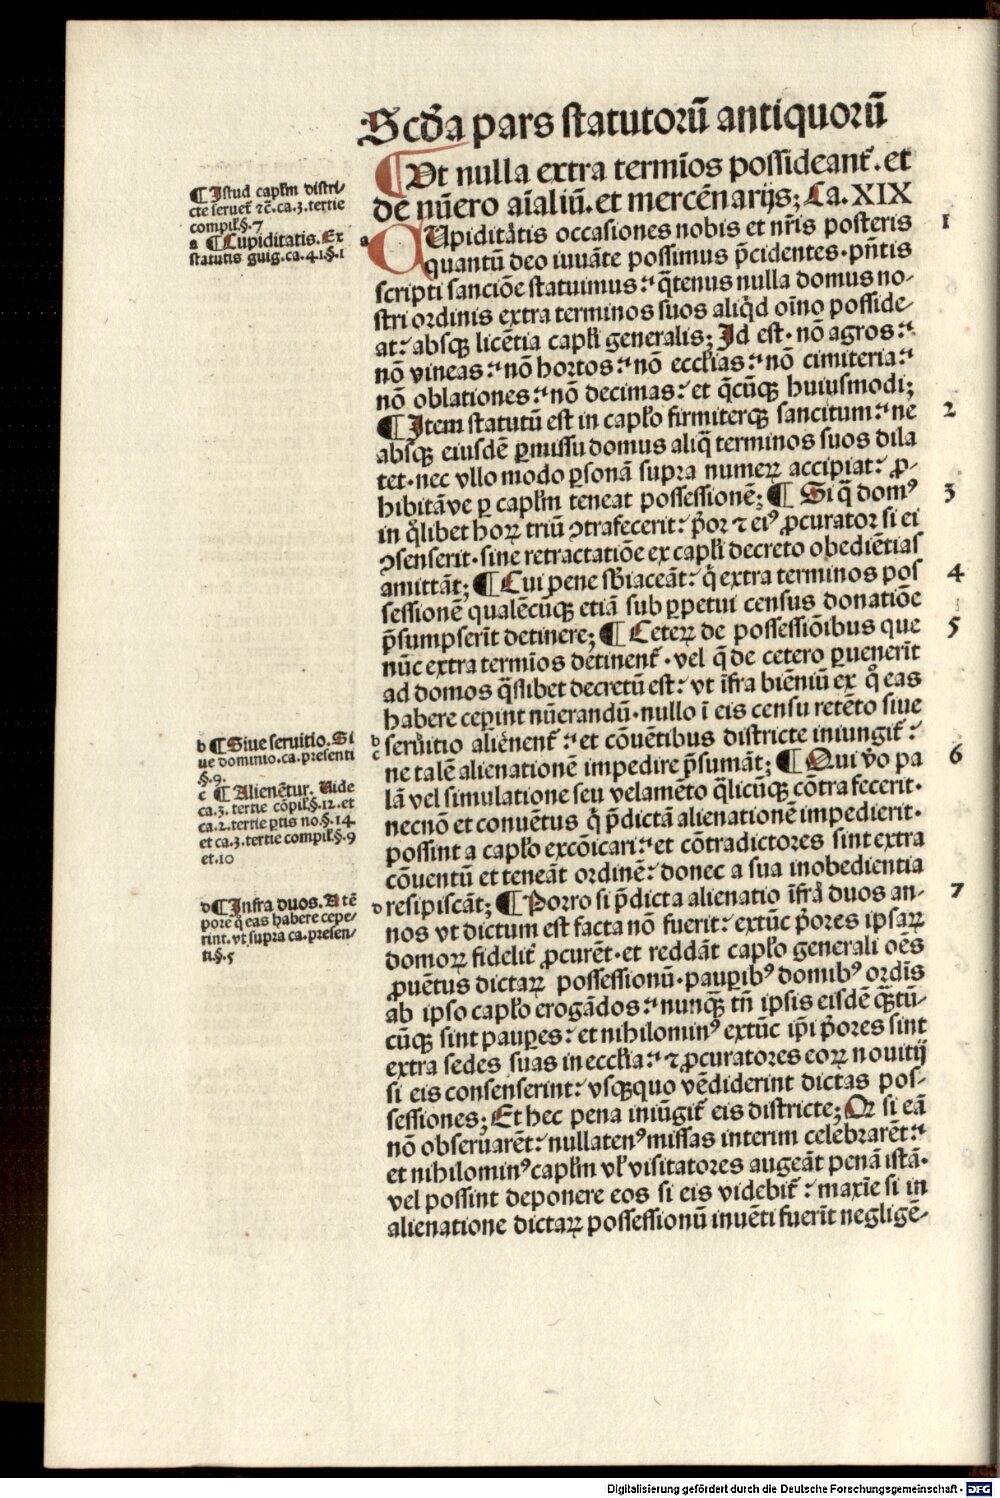 Scďa pars ſtatutorū antiquorū
¶ Vt nulla extra termīos poſſideant̄. et
de nūero aīaliū. et mercēnarijs; Ca. XIX
¶ Iſtud capl̄m diſtri⸗
cte ſeruet̄ ⁊c̄. ca. 3. tertie
compil̄. §. 7
a ¶ Cupiditatis. Ex
ſtatutis guig. ca. 41. §. 1
a CUpiditātis occaſiones nobis et nr̄is poſteris 1
quantū deo iuuāte poſſimus p̄cidentes. pn̄tis
ſcripti ſanctiōe ſtatuimus: q̄tenus nulla domus no⸗
ſtri ordinis extra terminos ſuos aliq̄d oīno poſſide⸗
at: abſqꝫ licētia capl̄i generalis; Id eſt. nō agros:
nō vineas: nō hortos: nō eccl̄ias: nō cimiteria:
nō oblationes: nō decimas: et q̄cūqꝫ huiuſmodi;
¶ Item ſtatutū eſt in capl̄o firmiterqꝫ ſancitum: ne 2
abſqꝫ eiuſdē ꝑmiſſu domus aliq̄ terminos ſuos dila
tet. nec vllo modo ꝑſonā ſupra numeꝝ accipiat: ꝓ⸗
hibitāve ꝑ capl̄m teneat poſſeſſionē; ¶ Si q̄ domꝰ 3
in q̄libet hoꝝ triū ꝯtrafecerit: p̄or ⁊ eiꝰ ꝓcurator ſi ei
ꝯſenſerit. ſine retractatiōe ex capl̄i decreto obediētias
amittāt; ¶ Cui pene ſb̄iaceāt: q̄ extra terminos poſ 4
ſeſſionē qualēcūqꝫ etiā ſub ꝑpetui cenſus donatiōe
p̄ſumpſerīt detinere; ¶ Ceteꝝ de poſſeſſiōibus que 5
nūc extra termīos detinent̄. vel q̄ de cetero ꝑuenerīt
ad domos q̄ſlibet decretū eſt: vt īfra biēniū ex q̊ eas
habere cepīnt nūerandū. nullo ī eis cenſu retēto ſiue
b ¶ Siue ſeruitio. Si
ue dominio. ca. preſenti
§. 9.
c ¶ Alienētur. Vide
ca. 3. tertie cōpil̄. §. 12. et
ca. 2. tertie ꝑtis no. §. 14.
et ca. 3. tertie compil̄. §. 9
et. 10
b ſeruitio aliēnent̄: et cōuētibus diſtricte iniungit̄:
c ne talē alienationē impedire p̄ſumāt; ¶ Qui v̄o pa 6
lā vel ſimulatione ſeu velamēto q̄licūqꝫ cōtra fecerit.
necnō et conuētus q̄ p̄dictā alienationē impedierit.
poſſint a capl̄o excōicari: et cōtradictores ſint extra
cōuentū et teneāt ordinē: donec a ſua inobedientia
d ¶ Infra duos. A tē
pore q̊ eas habere cepe⸗
rint. vt ſupra ca. preſen⸗
ti. §. 5
d reſipiſcāt; ¶ Porro ſi p̄dicta alienatio īfrā duos an⸗ 7
nos vt dictum eſt facta nō fuerit: extūc p̄ores ipſaꝝ
domoꝝ fidelit̄ ꝓcurēt. et reddāt capl̄o generali oēs
ꝓuētus dictaꝝ poſſeſſionū. pauꝑibꝰ domibꝰ ordīs
ab ipſo capl̄o erogādos: nunqꝫ tn̄ ipſis eiſdē qꝫtū⸗
cūqꝫ ſint pauꝑes: et nihilominꝰ extūc ip̄i p̄ores ſint
extra ſedes ſuas in eccl̄ia: ⁊ ꝓcuratores eoꝝ nouitij
ſi eis conſenſerint: vſqꝫquo vēdiderint dictas poſ⸗
ſeſſiones; Et hec pena iniūgit̄ eis diſtricte; Qꝛ ſi eā
nō obſeruarēt: nullatenꝰ miſſas interim celebrarēt:
et nihilominꝰ capl̄m vl̄ viſitatores augeāt penā iſtā.
vel poſſint deponere eos ſi eis videbit̄: maxīe ſi in
alienatione dictaꝝ poſſeſſionū inuēti fuerīt negligē⸗
Digitalisierung gefördert durch die Deutsche Forschungsgemeinschaft - DFG